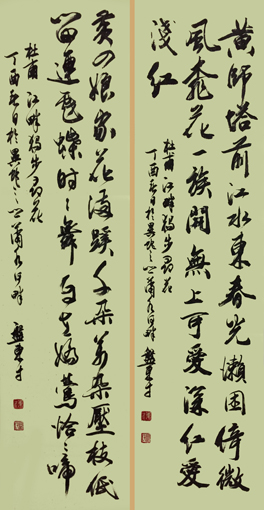 黄師塔前江水東春光懶困倚微
風桃花一簇開無主可愛深紅愛
淺紅
杜甫江畔独步尋花
丁酉日於河畔
黄四娘家花滿蹊千朵萬朵壓枝低
留連戲蝶時々舞自在嬌鶯恰々啼
杜甫江畔独步尋花
丁酉日於河畔